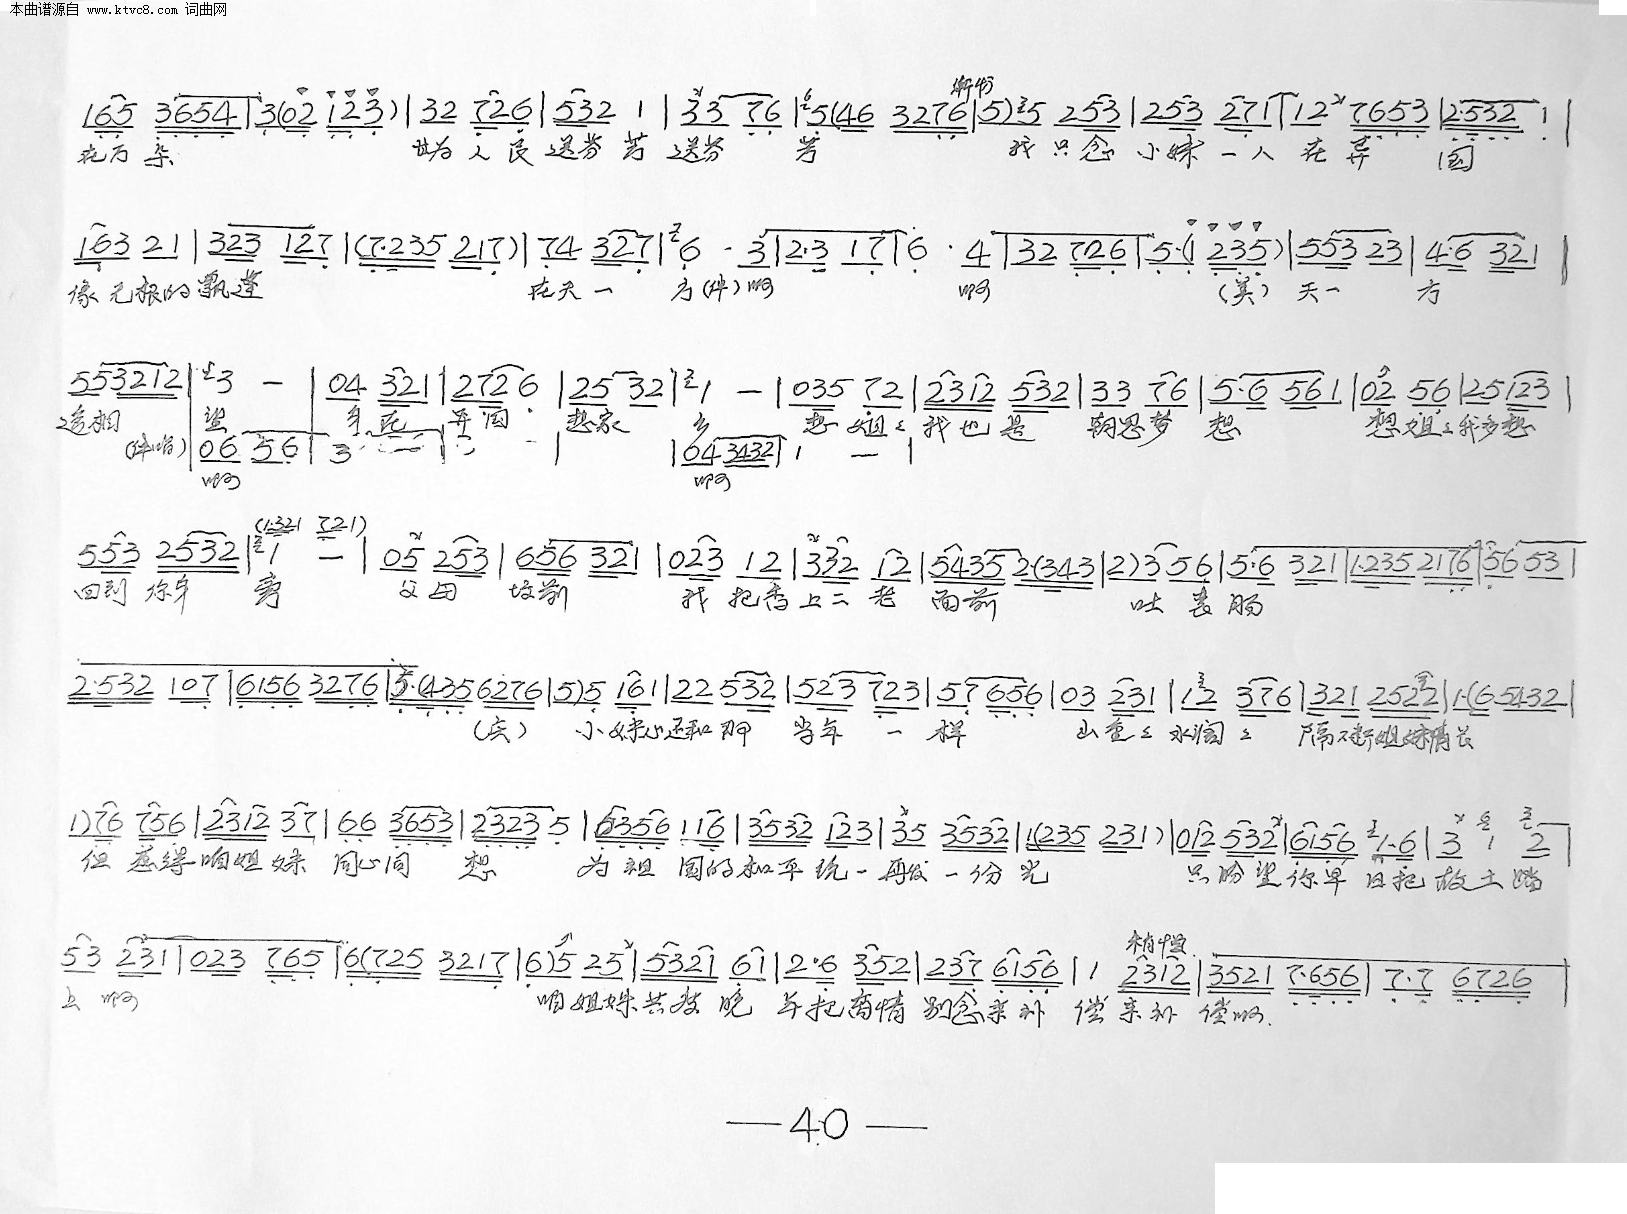 本曲谱源自 www.ktvc8.com 词曲网
渐慢
165 3654 | 3(02 123) | 32 726 | 532 1 | 33 76 | 5(46 3276 | 5)35 253 | 253 271 | 12 7653 | 2·532 1 |
花万朵 世为人民送芬芳送芬芳 我只念小妹一人在异国
163 21 | 323 127 | (7·235 217) | 74 327 | 6 · 3 | 2·3 17 | 6 · 4 | 32 726 | 5·(1 235) | 553 23 | 4·6 321 |
像无根的飘蓬 在天一方(伴)啊 啊 (美) 天一方
553212 | 3 — | 04 321 | 2726 | 25 32 | 1 — | 035 72 | 2312 532 | 33 76 | 5·6 561 | 02 56 | 25123 |
遥相望 身在异国 想家乡 想姐姐我也是朝思梦想 想姐姐我多想
(伴唱) 06 56 | 3 | 64 3432 | 1 — |
啊 啊
(1·321 721)
553 2532 | 1 — | 05 253 | 656 321 | 023 12 | 332 12 | 5435 2(343 | 2)356 | 5·6 321 | 1·235 2176 | 56 53 |
回到你身旁 父母坟前 我把香上二老面前 吐衷肠
2·532 107 | 6156 3276 | 5·(435 6276 | 5)5 161 | 22 532 | 523 723 | 57656 | 03 231 | 12 376 | 321 2522 | 1·(65432 |
小妹心还和那当年一样 山重重水阔阔隔不断姐妹情长
1)76 756 | 2312 37 | 66 3653 | 2323 5 | 6356 116 | 3532 123 | 35 3532 | 1(235 231) | 012 532 | 6156 1·6 | 3 1 2 |
但愿得咱姐妹同心同想 为祖国的和平统一再发一份光 只盼望你早日把故土踏
稍慢
53 231 | 023 765 | 6(725 3217 | 6)5 25 | 5321 61 | 2·6 352 | 237 6156 | 1 2312 | 3521 7·656 | 7·7 6726 |
上啊 咱姐妹共度晚年把离情别念来补偿来补偿啊.
—40—